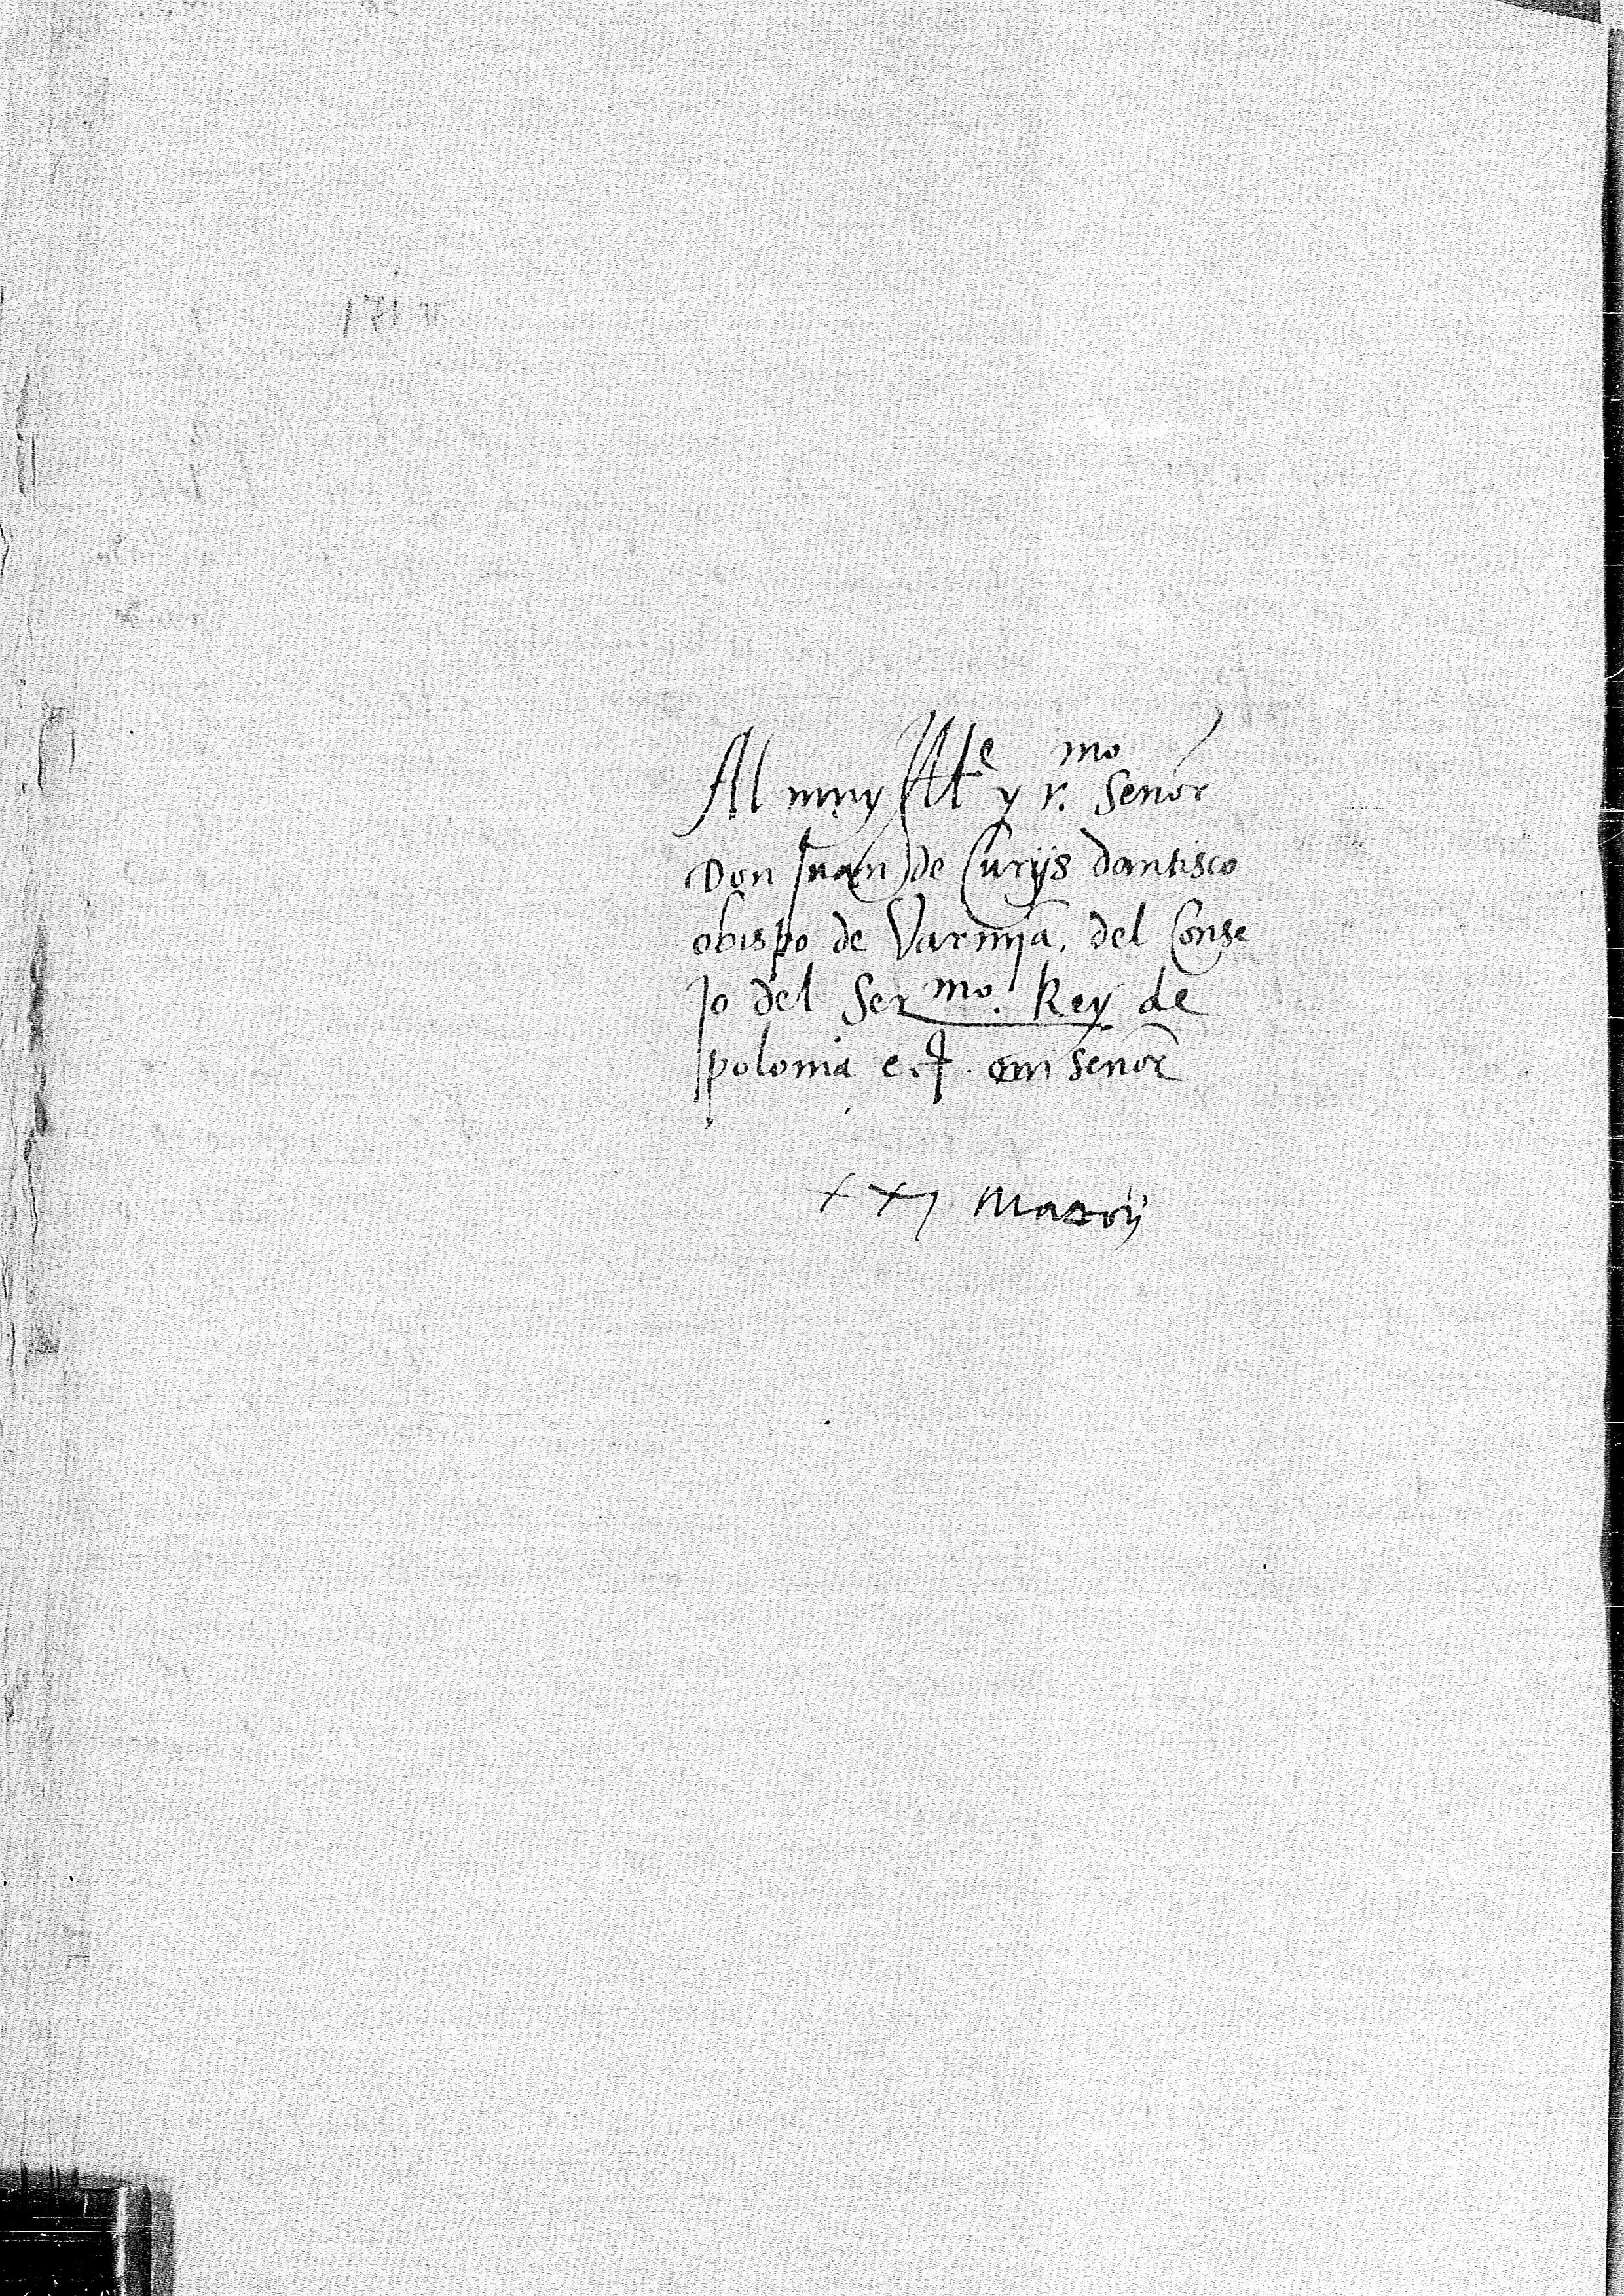 Al muy Ill.e y r.mo Señor
Don Juan de Curijs dantisco
obispo de Varmja, del Conse
jo del Ser.mo Rey de
polonia e.t. mi Señor
xxj Marcij